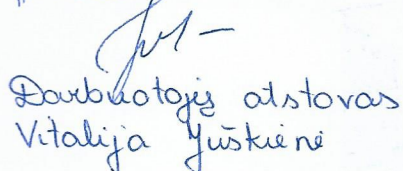 Darbuotojų atstovas
Vitalija Juškienė